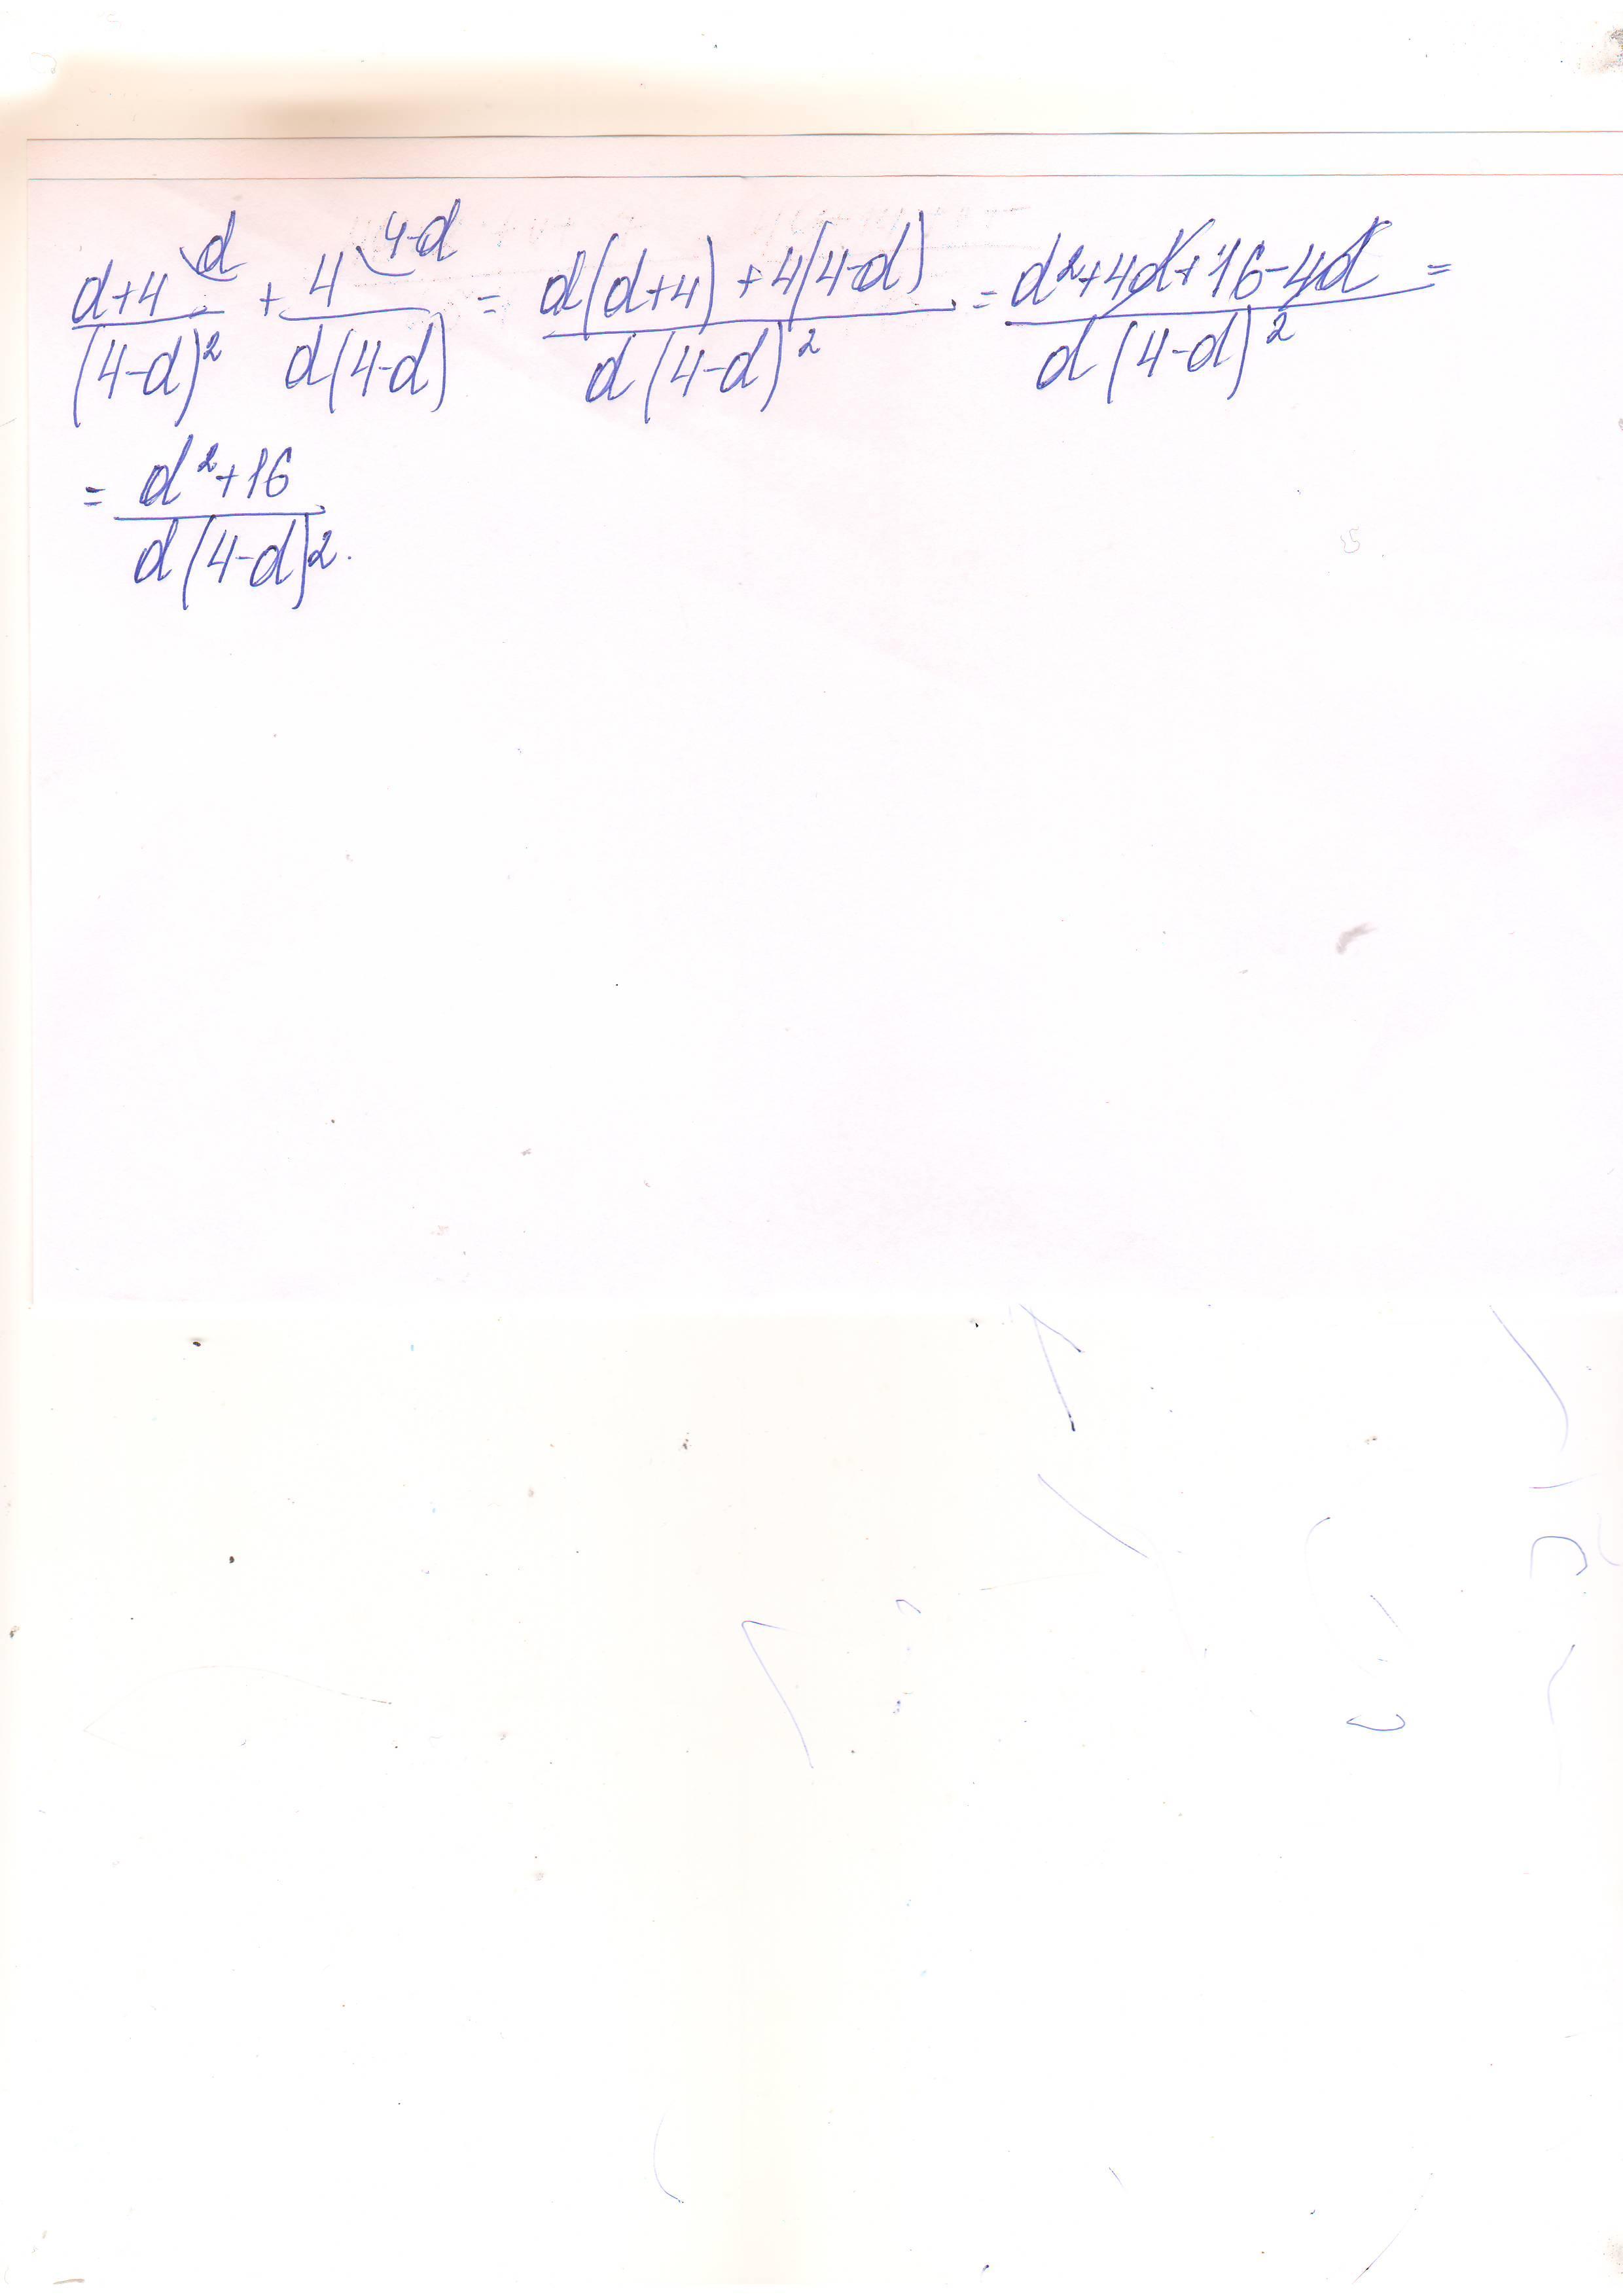 (d+4)/(4-d)² \d + 4/(d(4-d)) \4-d = (d(d+4)+4(4-d))/(d(4-d)²) = (d²+4d+16-4d)/(d(4-d)²) =
= (d²+16)/(d(4-d)²).